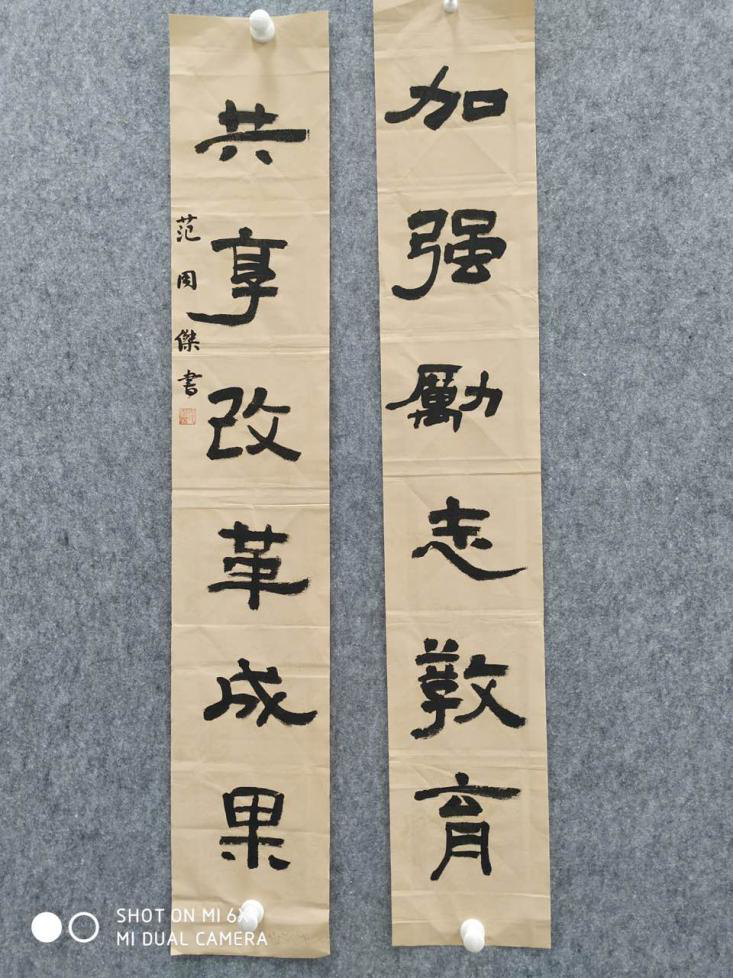 加强勵志教育
共享改革成果
范周傑書
SHOT ON MI 6X
MI DUAL CAMERA